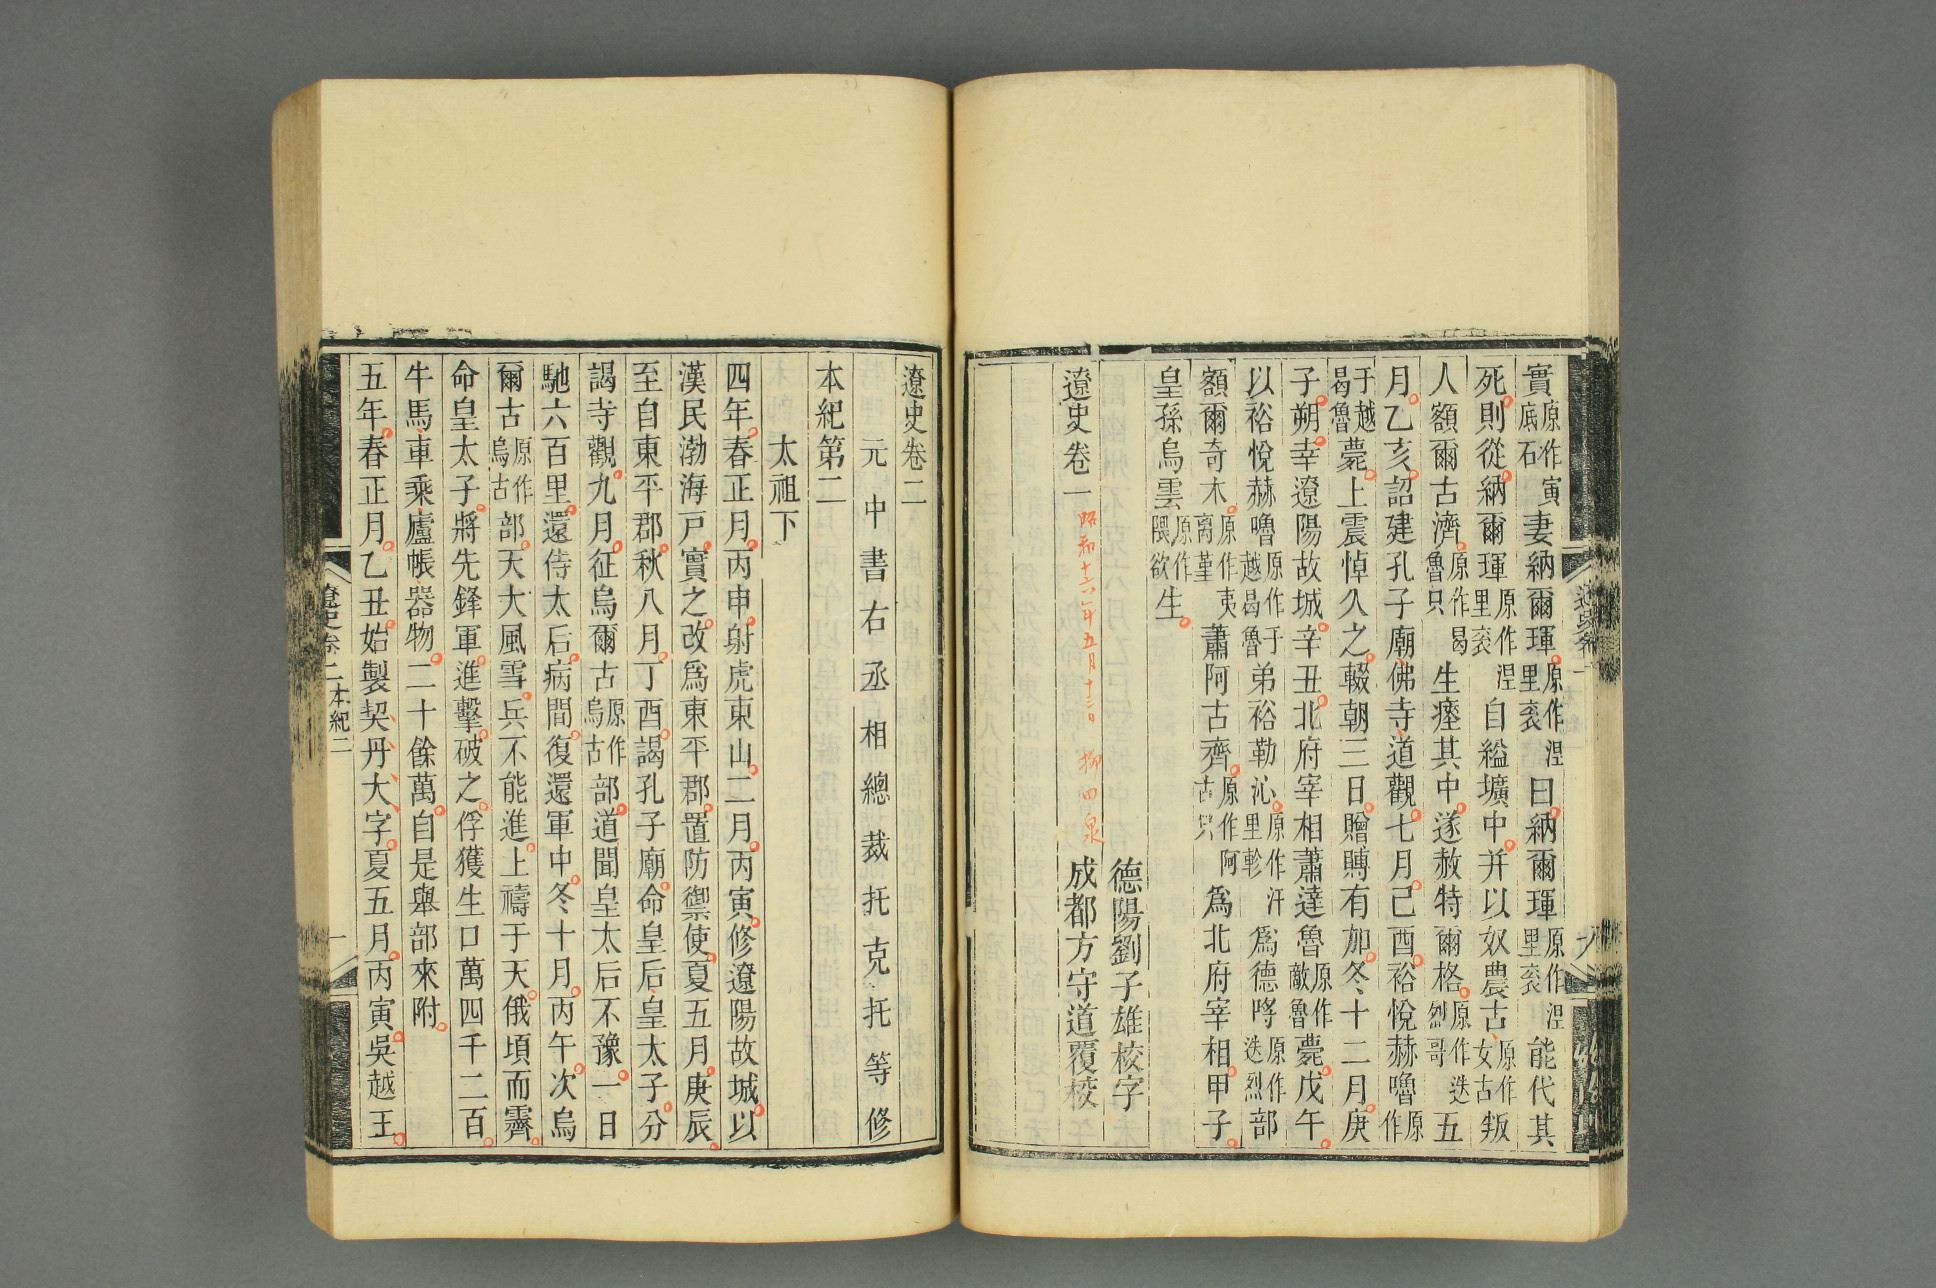 實原作寅底石妻納爾琿原作涅里袞曰納爾琿原作涅里袞能代其
死則從納爾琿原作涅里袞自縊壙中并以奴農古原作女古叛
人額爾古濟原作曷魯只生瘞其中遂赦特爾格原作迭烈哥五
月乙亥詔建孔子廟佛寺道觀七月己酉裕悅赫嚕原作
于越曷魯薨上震悼久之輟朝三日贈賻有加冬十二月庚
子朔幸遼陽故城辛丑北府宰相蕭達魯原作敵魯薨戊午
以裕悅赫嚕原作于越曷魯弟裕勒沁原作汗里軫爲德哷原作迭烈部
額爾奇木原作夷离堇蕭阿古齊原作阿古只爲北府宰相甲子
皇孫烏雲原作隈欲生
德陽劉子雄校字
遼史卷一
昭和十六年五月十三日 柳田泉
成都方守道覆校
遼史卷一
遼史卷二
元中書右丞相總裁托克托等修
本紀第二
太祖下
四年春正月丙申射虎東山二月丙寅修遼陽故城以
漢民渤海戶實之改爲東平郡置防禦使夏五月庚辰
至自東平郡秋八月丁酉謁孔子廟命皇后皇太子分
謁寺觀九月征烏爾古原作烏古部道聞皇太后不豫一日
馳六百里還侍太后病間復還軍中冬十月丙午次烏
爾古原作烏古部天大風雪兵不能進上禱于天俄頃而霽
命皇太子將先鋒軍進擊破之俘獲生口萬四千二百
牛馬車乘廬帳器物二十餘萬自是舉部來附
五年春正月乙丑始製契丹大字夏五月丙寅吳越王
遼史卷二 本紀二
一